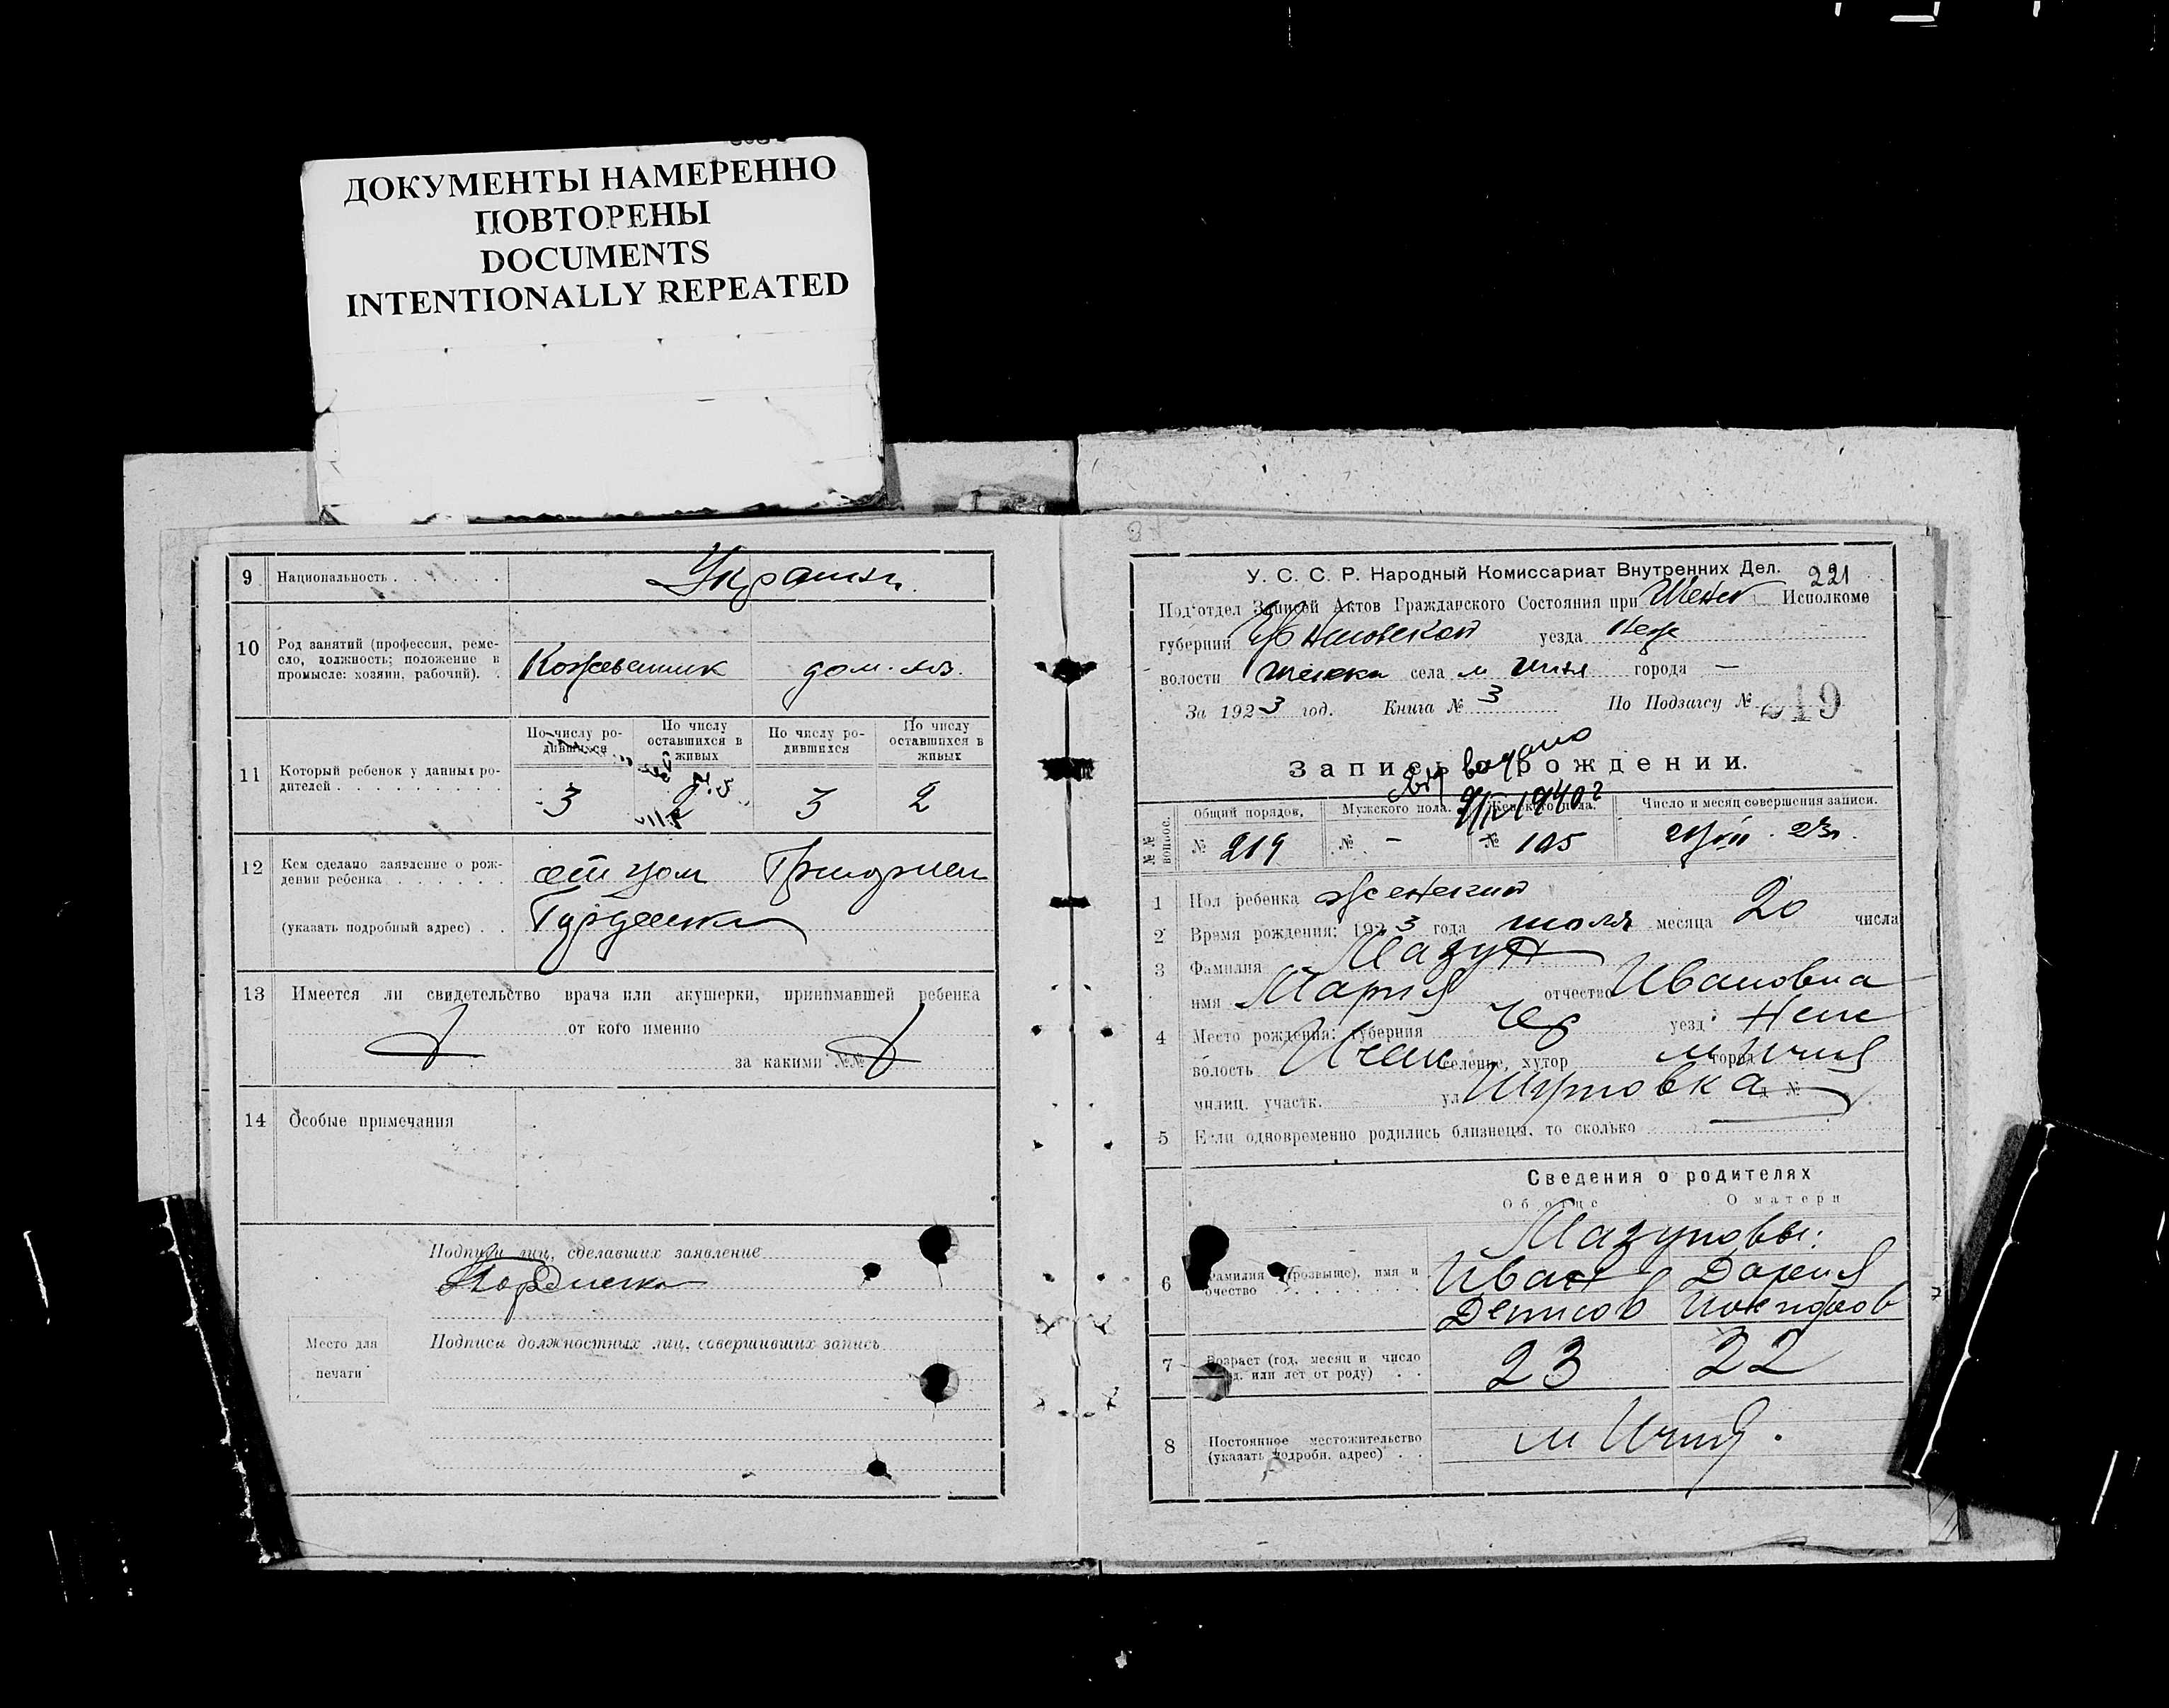 ДОКУМЕНТЫ НАМЕРЕННО
ПОВТОРЕНЫ
DOCUMENTS
INTENTIONALLY REPEATED
9 Национальность Украинц.
10 Род занятий (профессия, реме-
сло, должность; положение в
промысле: хозяин, рабочий).
Кожевник дом. хоз.
11 Который ребенок у данных ро-
дителей
По числу ро-
дившихся
По числу
оставшихся в
живых
По числу ро-
дившихся
По числу
оставшихся в
живых
3 2 3 2
12 Кем сделано заявление о рож-
дении ребенка
отцом Григорием
(указать подробный адрес)
13 Имеется ли свидетельство врача или акушерки, принимавшей ребенка
от кого именно
за какими №№
14 Особые примечания
Подписи лиц, сделавших заявление
Место для
печати
Подписи должностных лиц, совершивших запись
221
У. С. С. Р. Народный Комиссариат Внутренних Дел.
Под'отдел Записей Актов Гражданского Состояния при Исполкоме
губернии уезда Неж
волости села м города —
За 1923 год. Книга № 3 По Подзагсу № 219
Запись о рождении.
выдано
1940 г
№№ вопрос.
Общий порядов. Мужского пола. Женского пола. Число и месяц совершения записи.
№ 219 № - № 105 23г.
1 Пол ребенка женский
2 Время рождения: 1923 года июля месяца 20 числа
3 Фамилия Мазун
имя Мария отчество Ивановна
4 Место рождения: губерния Чер уезд Неж
волость Ичен селение, хутор город м Ичня
милиц. участк. ул. д №
5 Если одновременно родились близнецы, то сколько
Сведения о родителях
Об отце О матери
6 Фамилия (прозвище), имя и
отчество
Мазуновы:
Иван Дария
Денисов
7 Возраст (год, месяц и число
рожд. или лет от роду)
23 22
8 Постоянное местожительство
(указать подробн. адрес)
м Ичня.